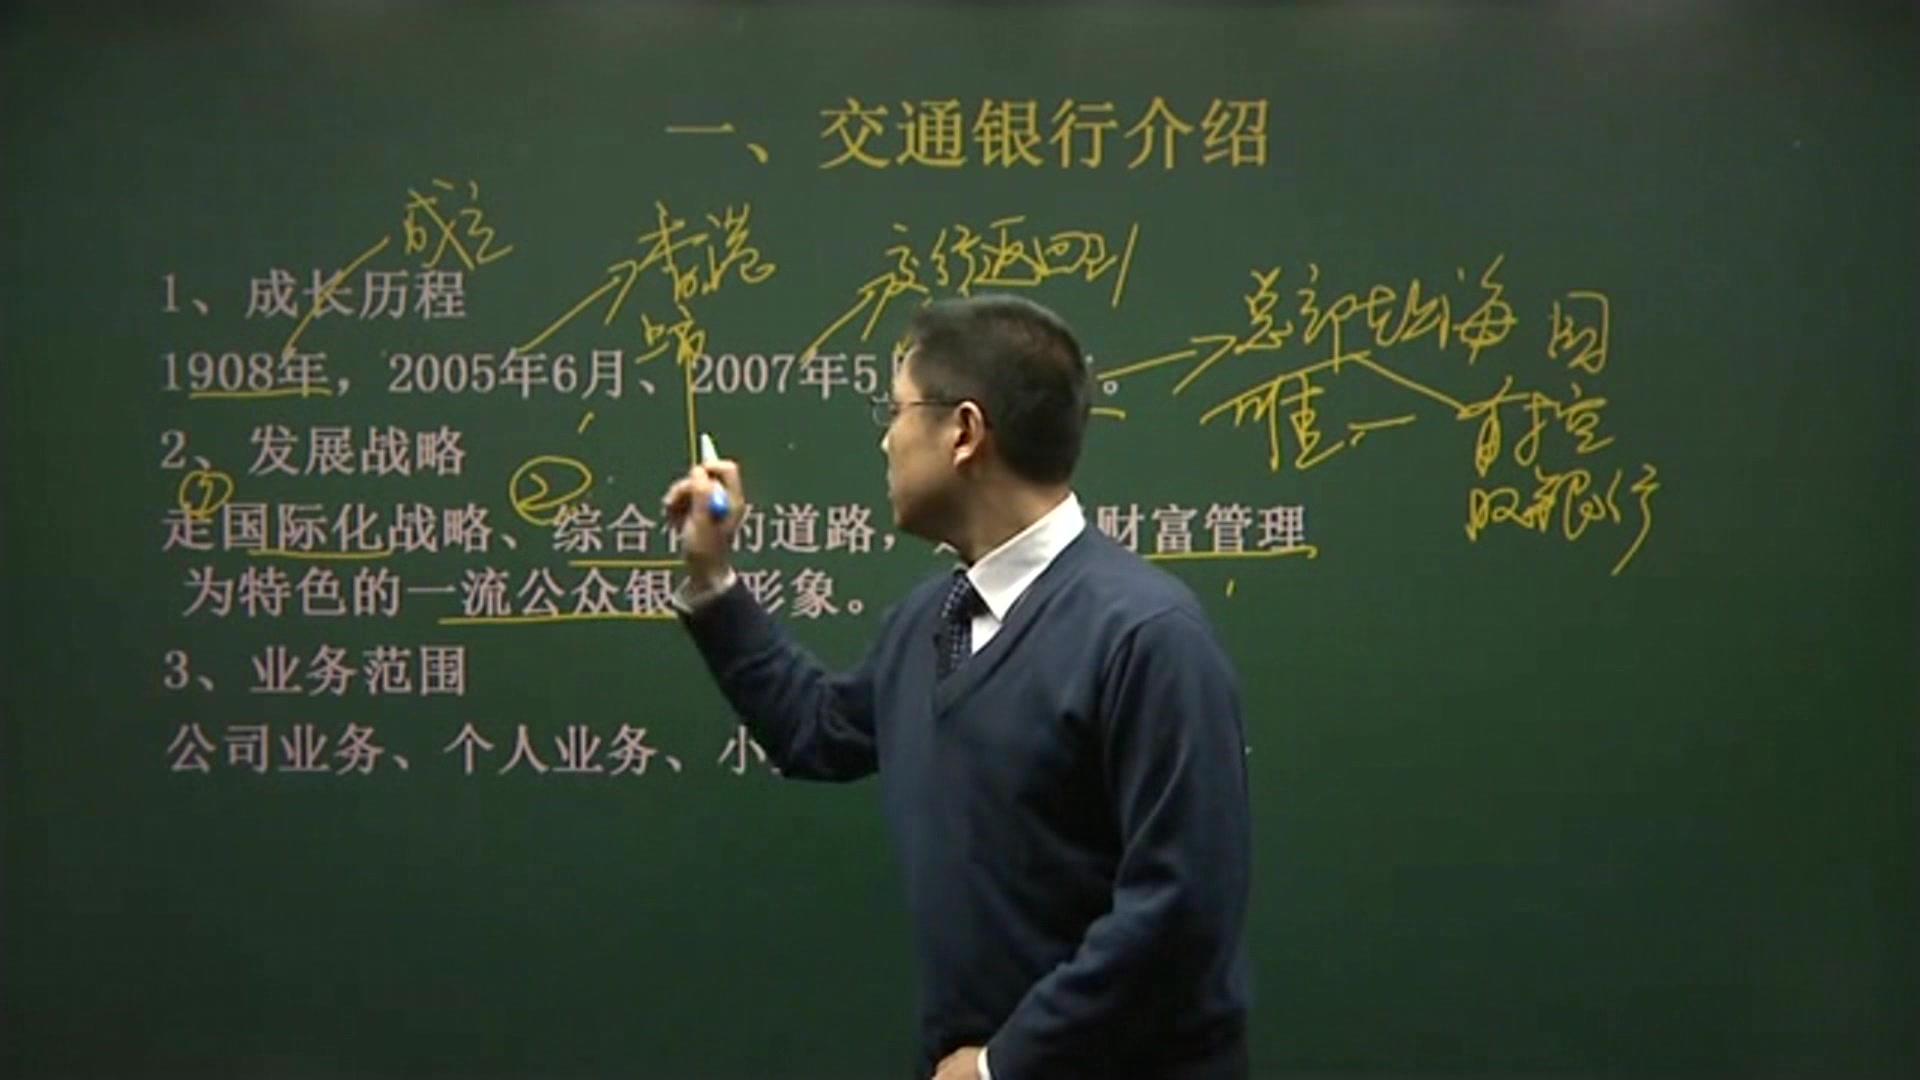 一、交通银行介绍
成立
香港
上市
交行返回到
总部在上海 国
唯一 有控
股银行
1、成长历程
1908年，2005年6月、2007年5
2、发展战略
① ②
走国际化战略、综合 的道路， 财富管理
为特色的一流公众银 形象。
3、业务范围
公司业务、个人业务、小